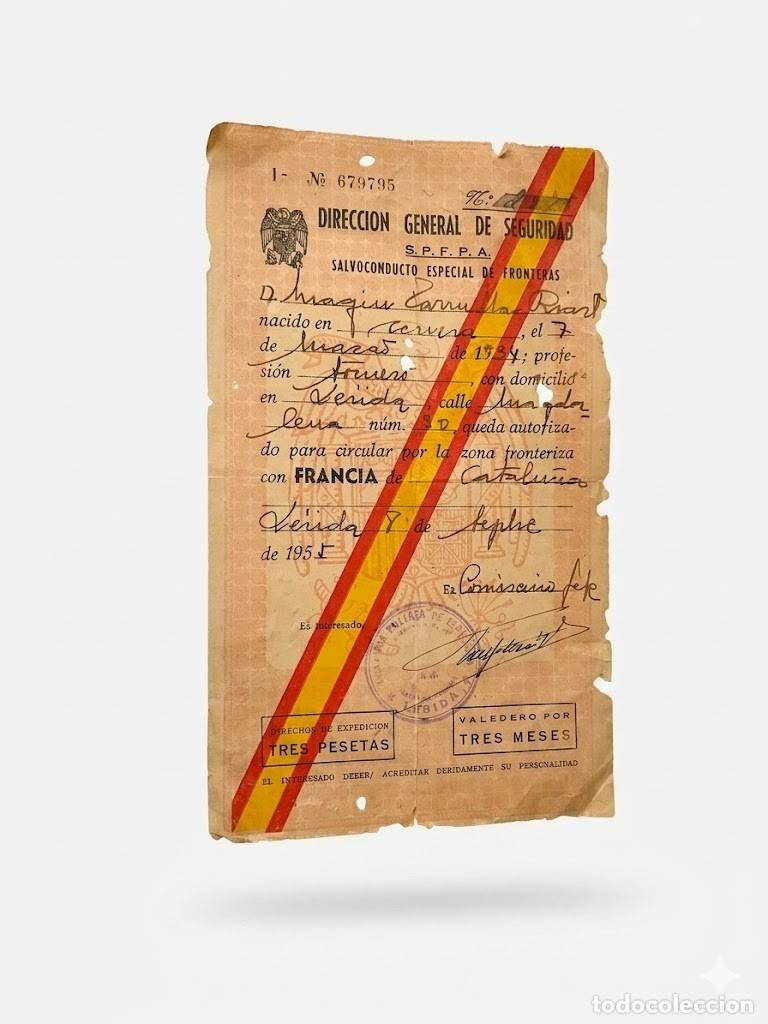 1- № 679795
N.º
DIRECCION GENERAL DE SEGURIDAD
S.P.F.P.A.
SALVOCONDUCTO ESPECIAL DE FRONTERAS
D. Magin Riart
nacido en Cervera, el 7
de Marzo de 1931; profe-
sión tornero, con domicilio
en Lérida, calle Magda
lena núm. 30, queda autoriza-
do para circular por la zona fronteriza
con FRANCIA de Cataluña
Lérida 8 de Sepbre
de 1955
El Comisario Jefe
El interesado,
LERIDA
DERECHOS DE EXPEDICION
TRES PESETAS
VALEDERO POR
TRES MESES
EL INTERESADO DEEER/ ACREDITAR DERIDAMENTE SU PERSONALIDAD
todocoleccion